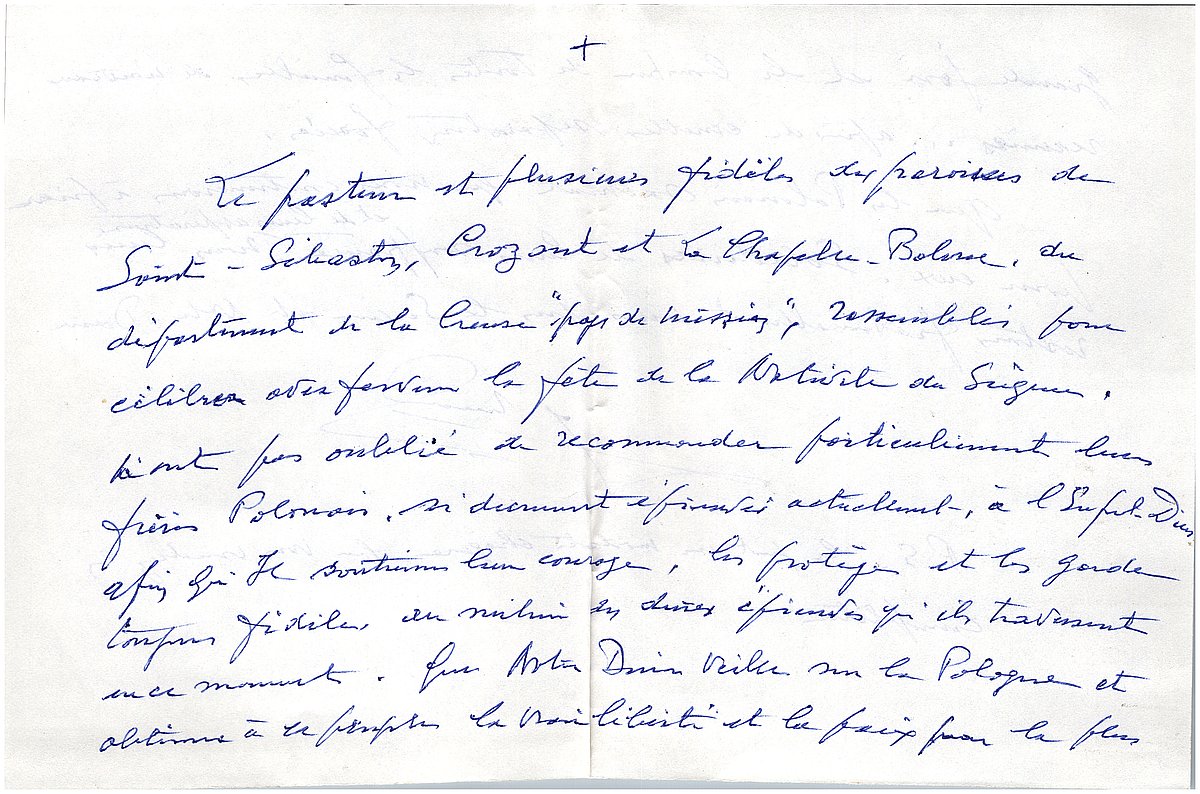 +
Le pasteur et plusieurs fidèles des paroisses de
Saint-Sébastien, Crozant et La Chapelle-Baloue, du
département de la Creuse "pays de mission", rassemblés pour
célébrer avec ferveur la fête de la Nativité du Seigneur,
n'ont pas oublié de recommander particulièrement leurs
frères Polonais, si durement éprouvés actuellement, à l'Enfant-Dieu
afin qu'Il soutienne leur courage, les protège et les garde
toujours fidèles, au milieu des dures épreuves qu'ils traversent
en ce moment. Que Notre Dame veille sur la Pologne et
obtienne à ce peuple la vraie liberté et la paix pour la plus